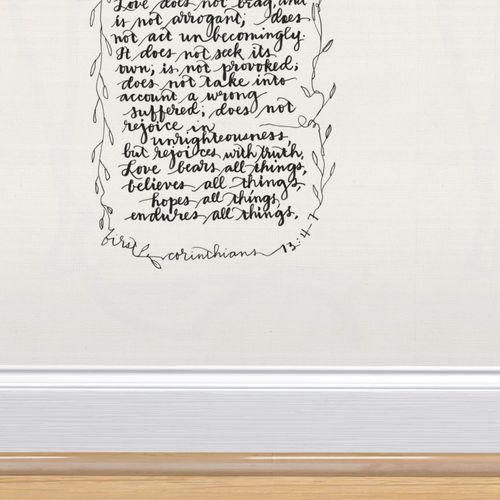 Love does not brag, and
is not arrogant; does
not act unbecomingly.
It does not seek its
own; is not provoked;
does not take into
account a wrong
suffered; does not
rejoice in
unrighteousness,
but rejoices with truth,
Love bears all things,
believes all things,
hopes all things,
endures all things,
firstly corinthians 13:4-7